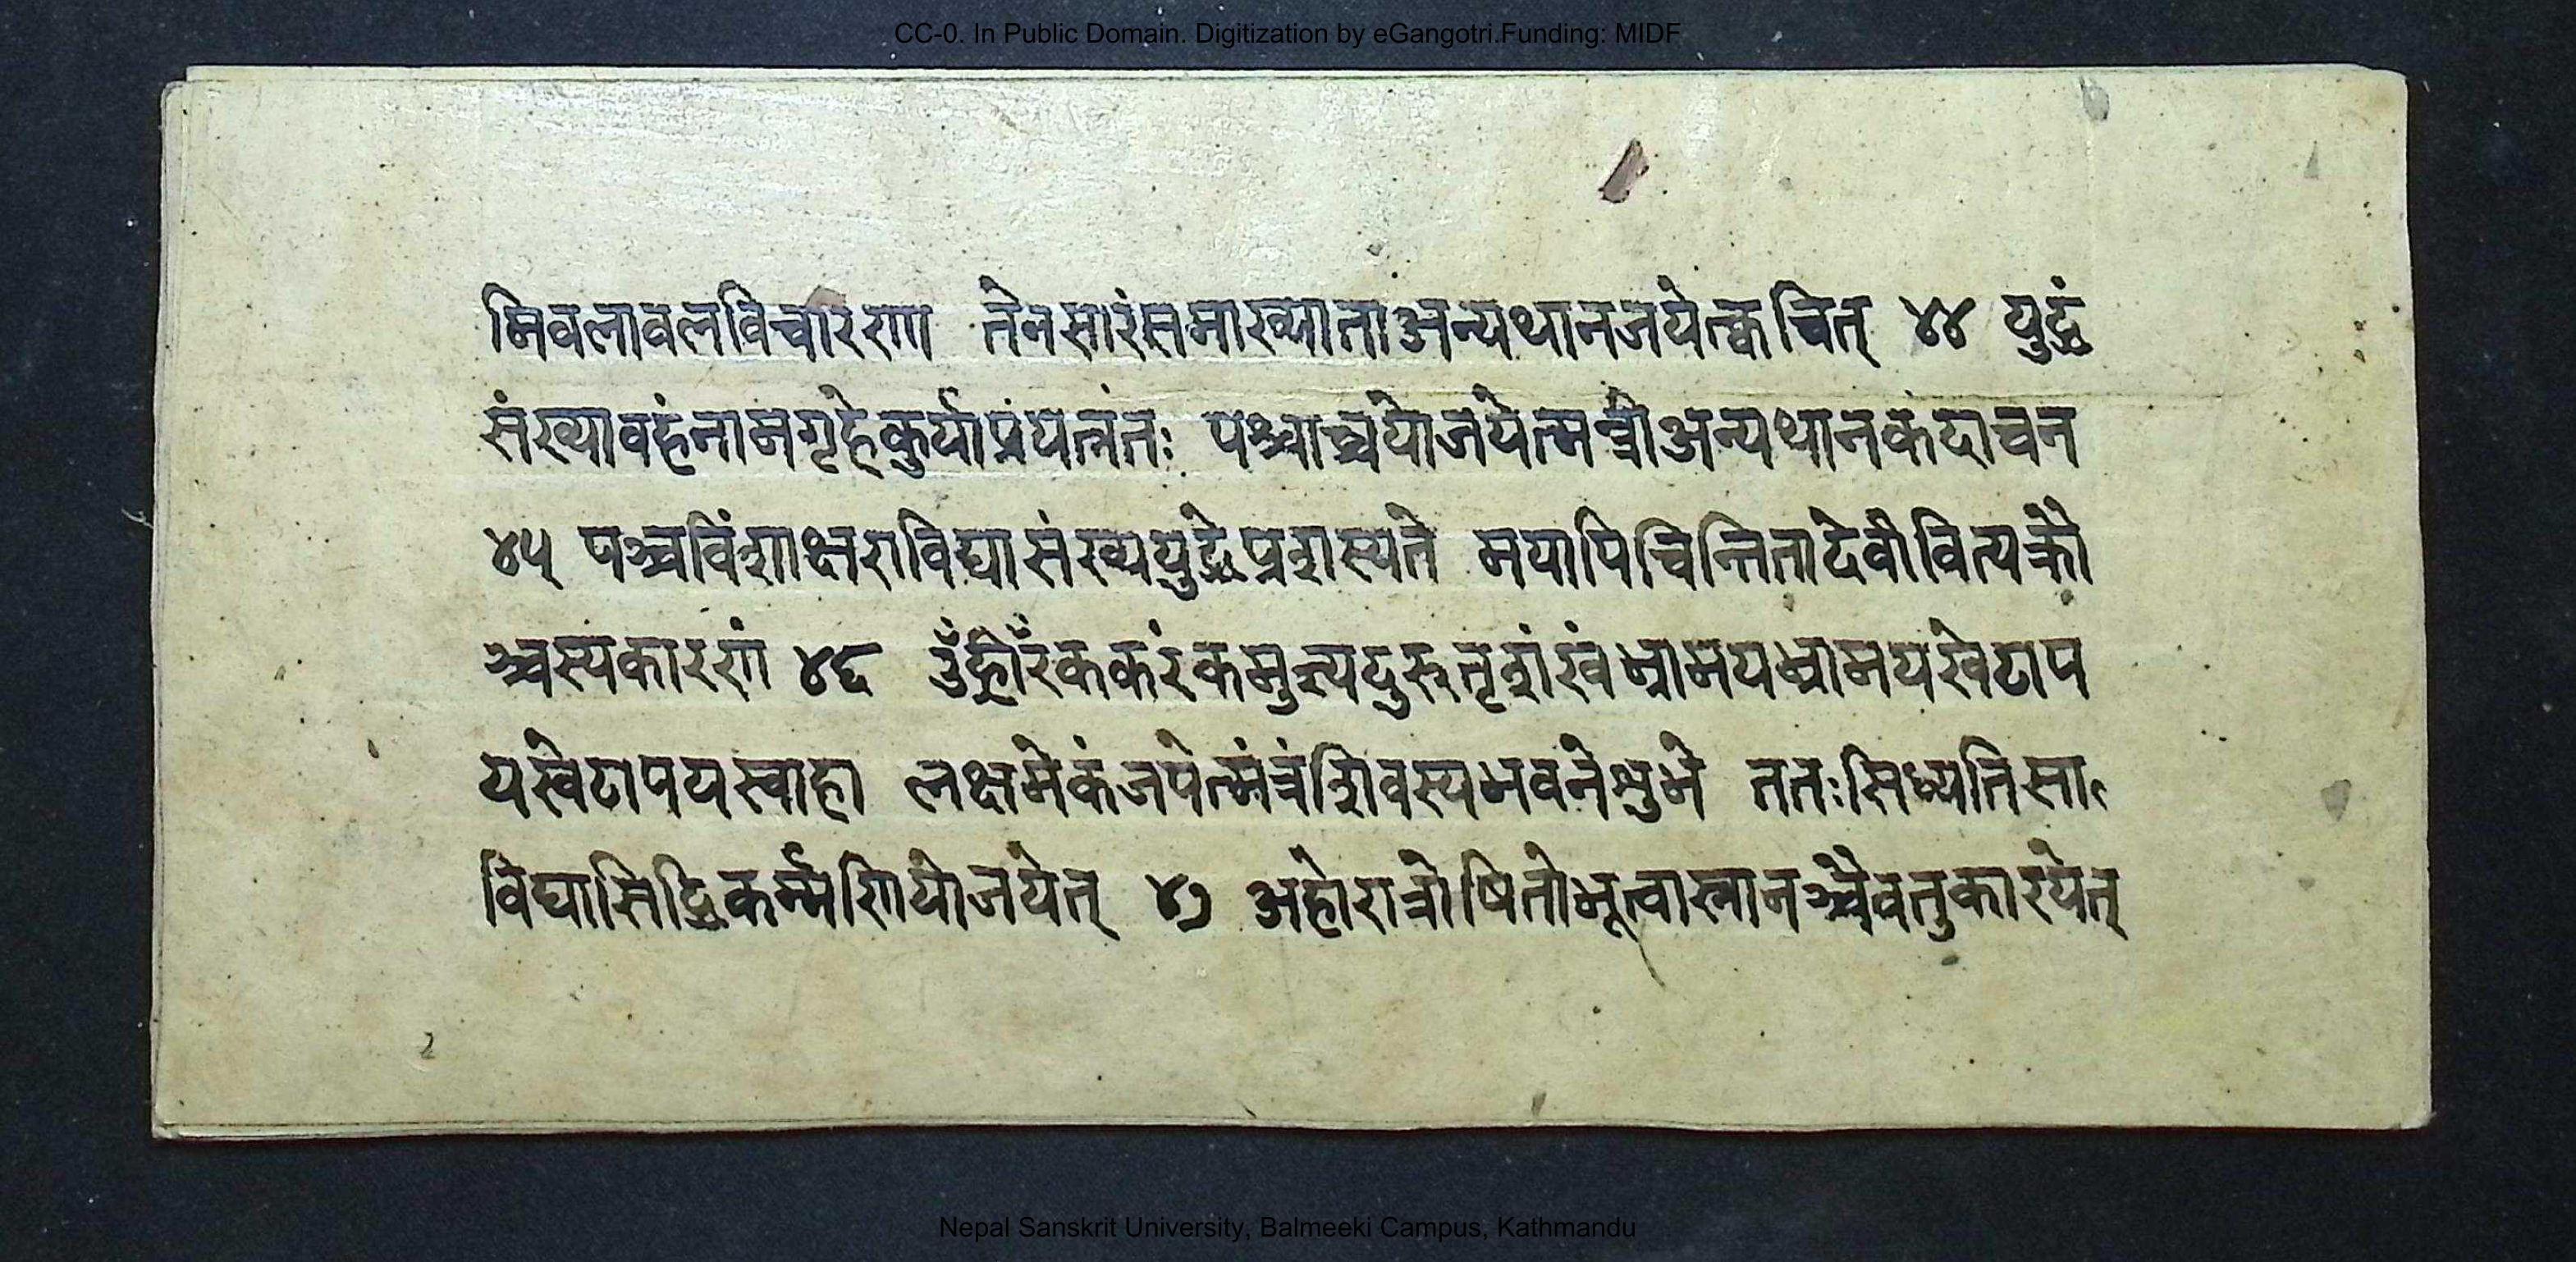 CC-0. In Public Domain. Digitization by eGangotri.Funding: MIDF
मिवलावलविचारणा तेनसारंसमाख्याताअन्यथानजयेत्क्वचित् ४४ युद्धं
संख्यावहंनामगृहेकुर्याप्रंयत्नंतः पश्चाच्चयोजयेत्मन्त्रीअन्यथानकंदाचन
४५ पञ्चविंशाक्षराविद्यासंख्ययुद्धेप्रशस्यते मयापिचिन्तितादेवीवित्यक्रौ
ञ्चस्यकारणं ४६ ह्रीँरंककरंकमुत्त्यदुरुतृशंखंभ्रामयभ्रामयखेटाप
यखेटापयस्वाहा लक्षमेकंजपेत्मंत्रंशिवस्यभवनेशुभे ततःसिध्यतिसा
विद्यासिद्धिकर्म्मणियोजयेत् ४७ अहोरात्रोषितोभूत्वास्नानञ्चैवतुकारयेत्
Nepal Sanskrit University, Balmeeki Campus, Kathmandu